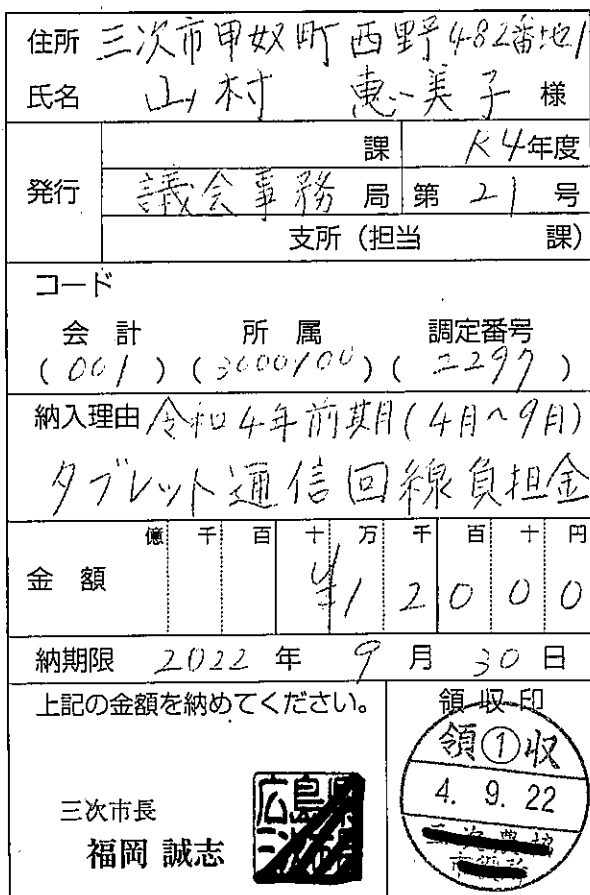 住所 三次市甲奴町西野482番地1
氏名 山村 恵美子 様
発行
課 R4年度
議会事務局 第 21 号
支所(担当 課)
コード
会計 所属 調定番号
(001)(3000100)(2297)
納入理由 令和4年前期(4月~9月)
タブレット通信回線負担金
金額 億 千 百 十 万 千 百 十 円
¥12000
納期限 2022 年 9 月 30 日
上記の金額を納めてください。
三次市長
福岡 誠志
広島県
領収印
領①収
4. 9. 22